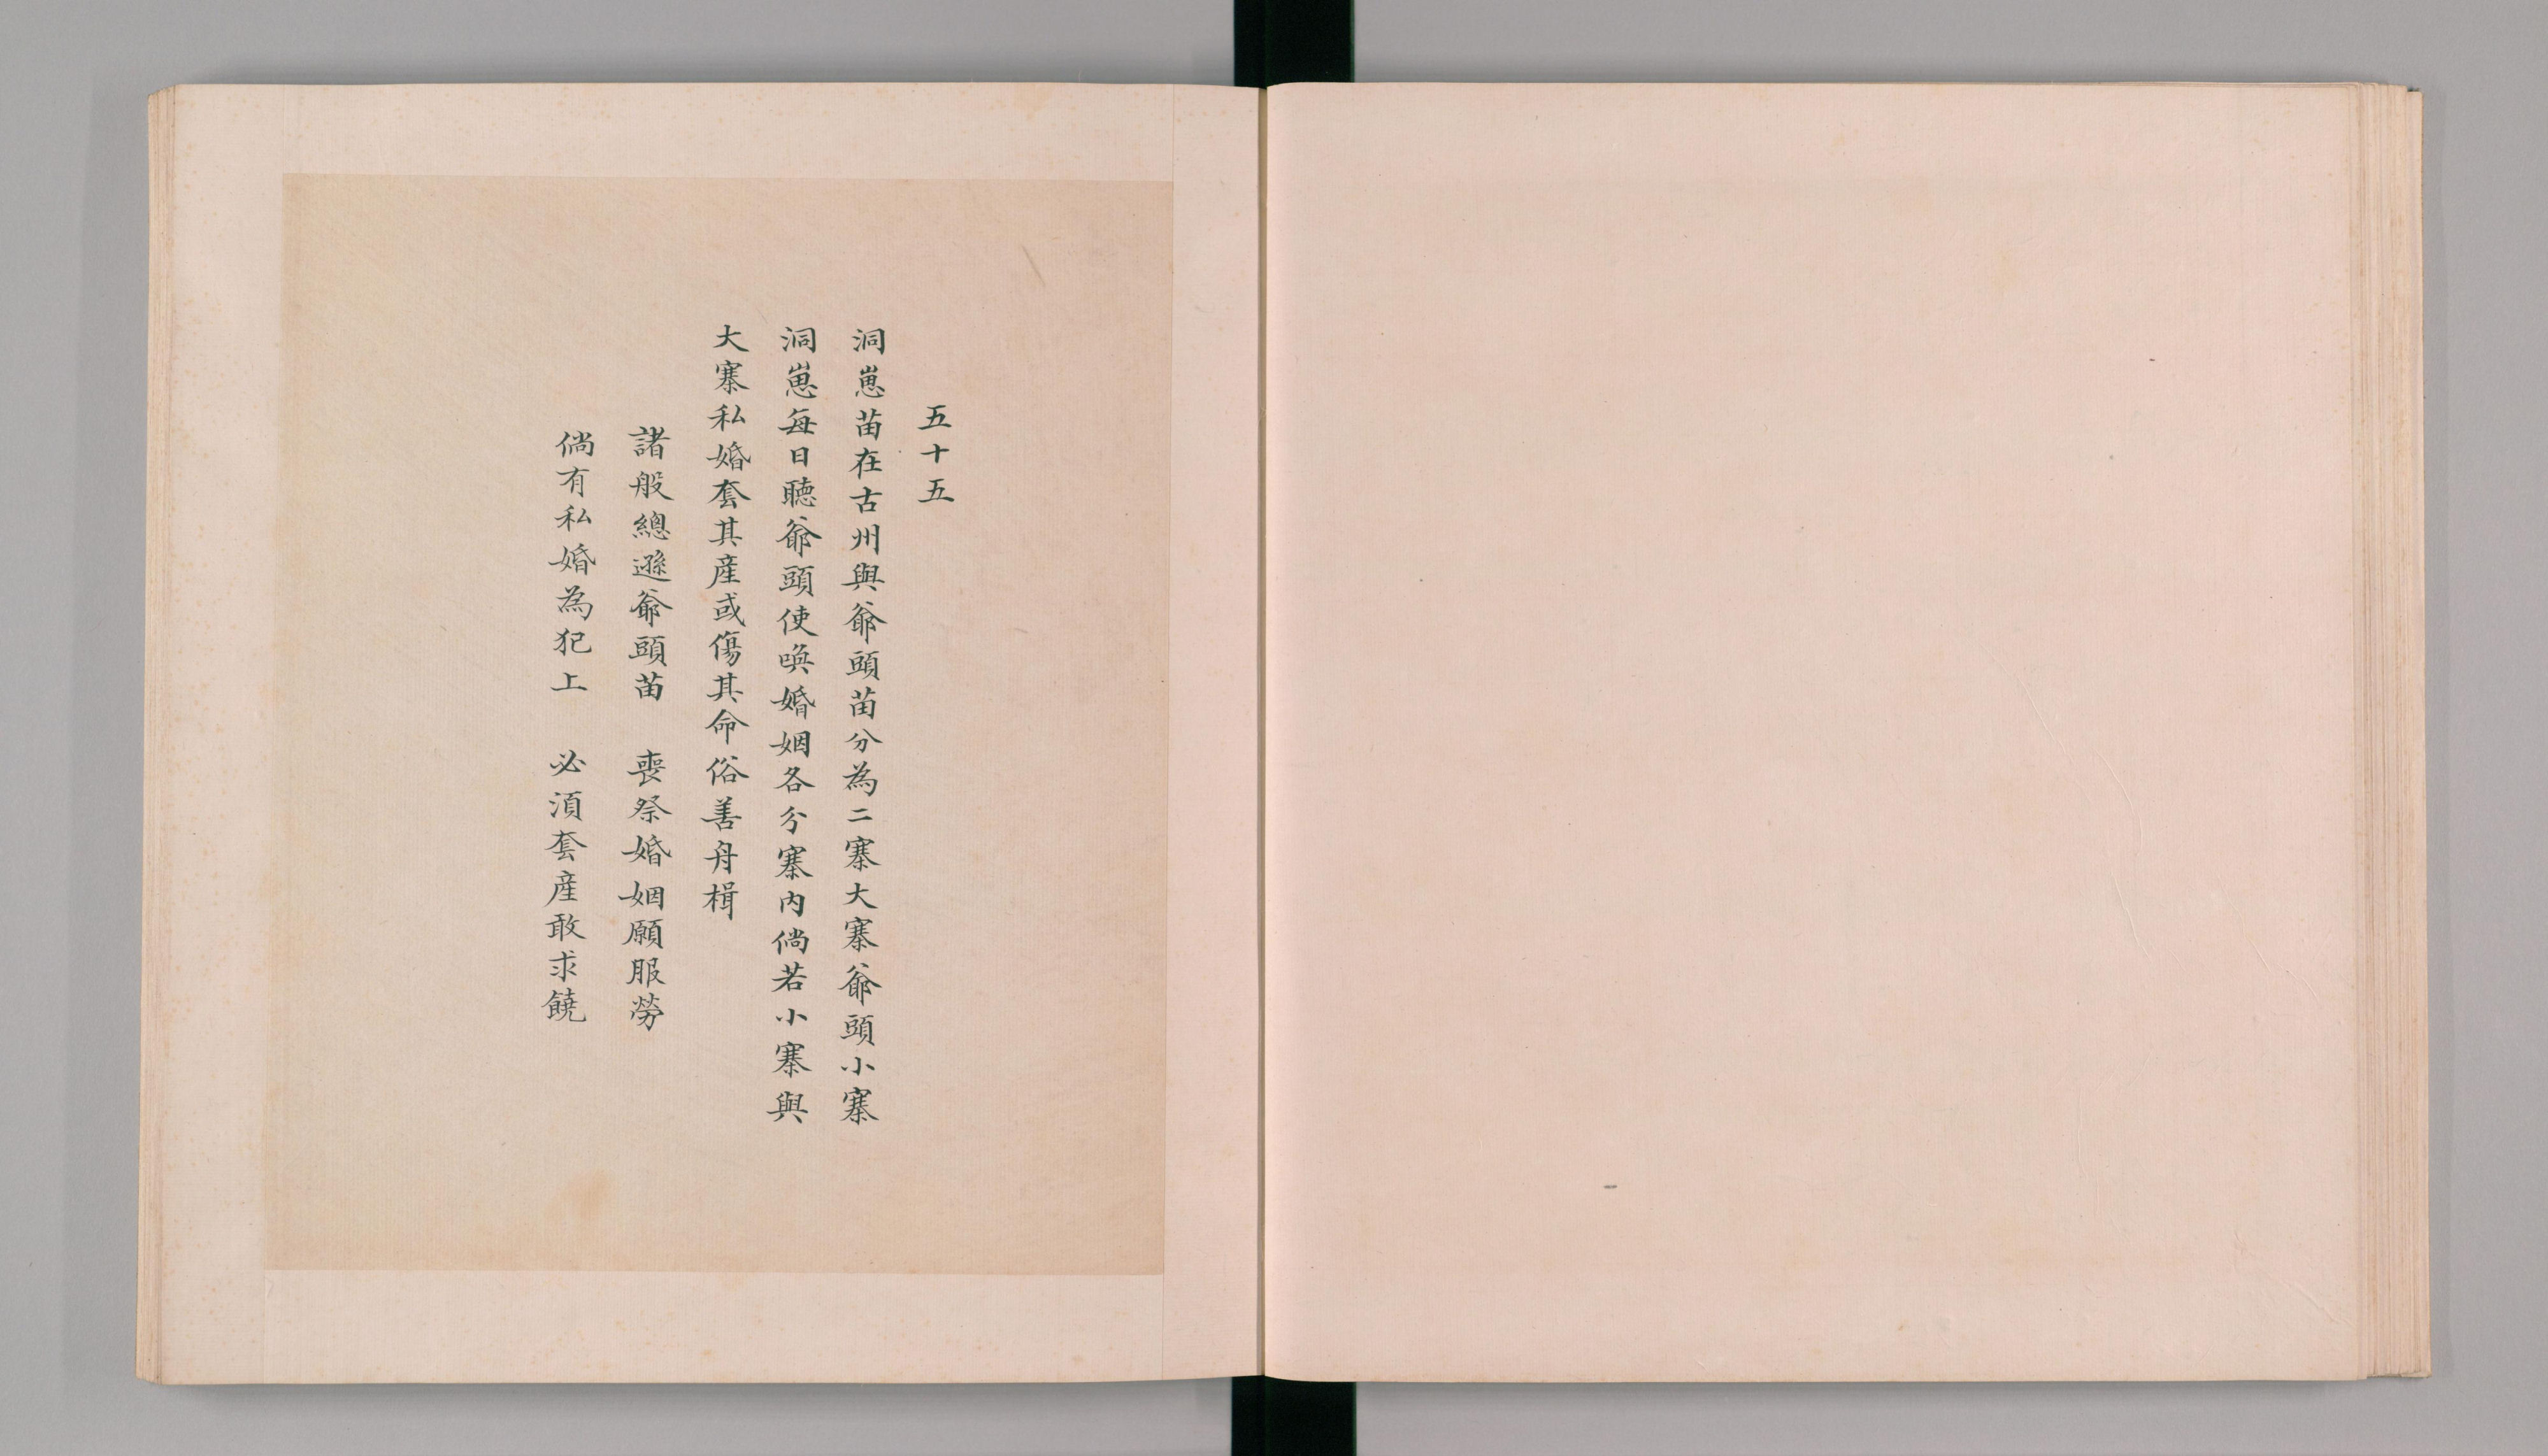 五十五
洞崽苗在古州與爺頭苗分為二寨大寨爺頭小寨
洞崽每日聽爺頭使喚婚姻各分寨內倘若小寨與
大寨私婚套其產或傷其命俗善舟楫
諸般總遜爺頭苗　喪祭婚姻願服勞
倘有私婚為犯上　必須套產敢求饒